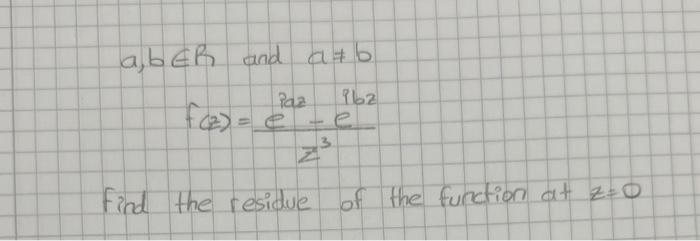 a,b ∈ R and a ≠ b
f(z) = (e^{iaz} - e^{ibz}) / z^3
Find the residue of the function at z=0